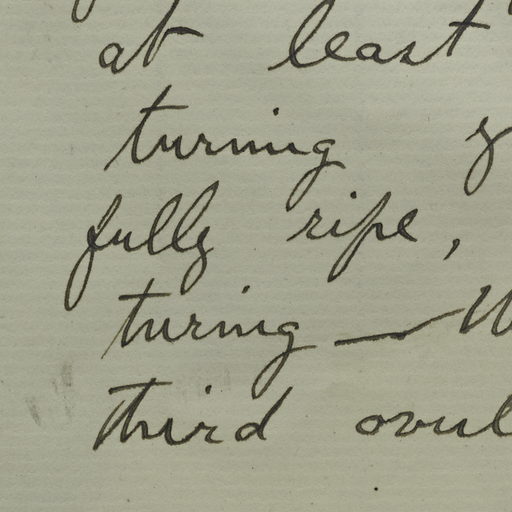 at least
turning
fully ripe,
turing —
third